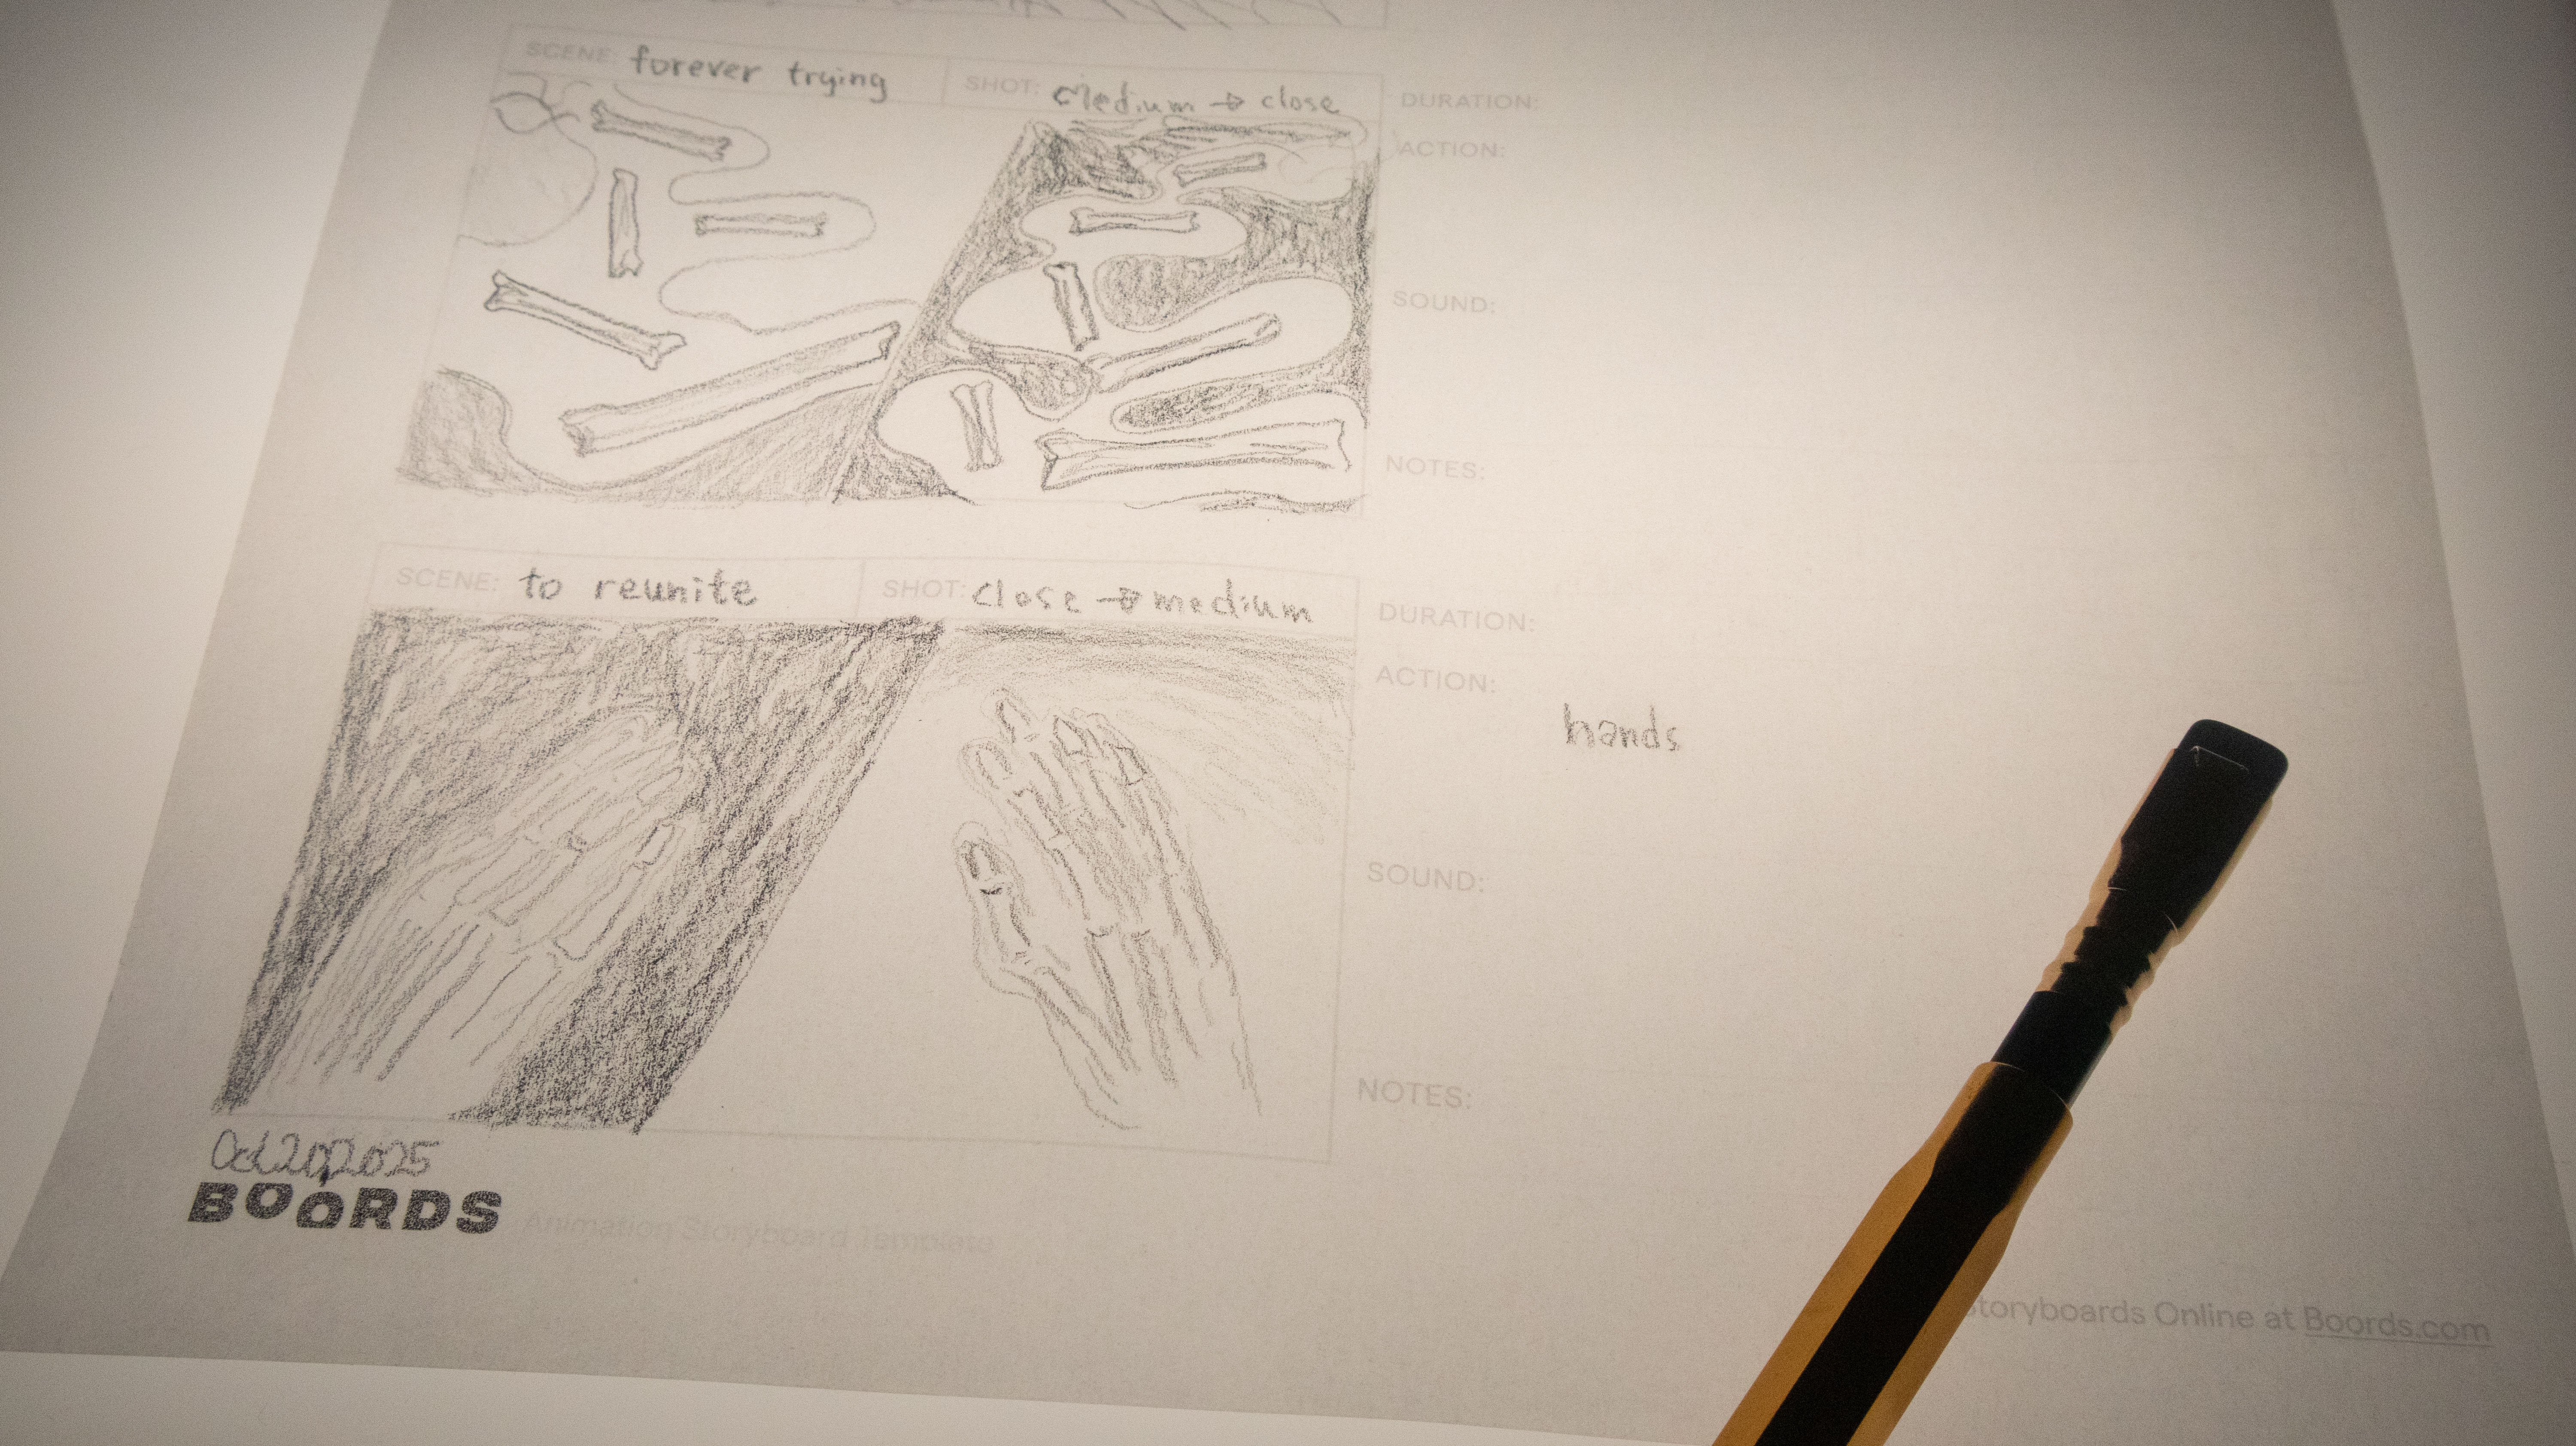 SCENE: forever trying SHOT: Medium → close
DURATION:
ACTION:
SOUND:
NOTES:
SCENE: to reunite SHOT: close → medium
DURATION:
ACTION:
hands
SOUND:
NOTES:
Oct 20, 2025
BOORDS Animation Storyboard Template
Storyboards Online at Boords.com